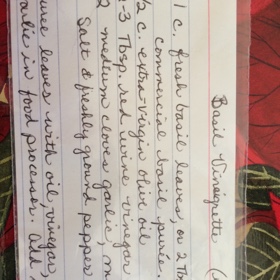 Basil Vinaigrette (
1 c. fresh basil leaves or 2 Tb
commercial basil puree
/2 c. extra-virgin olive oil
-3 Tbsp. red wine vinegar
2 medium cloves garlic, m
Salt & freshly ground pepper
uree leaves with oil, vinegar,
arlic in food processor. Add